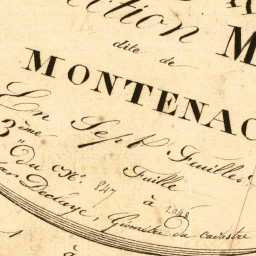 ction M
dite de
MONTENAC
En Sept Feuilles
3ème Feuille
du N° 847 à 2048
Géomètre du cadastre
à